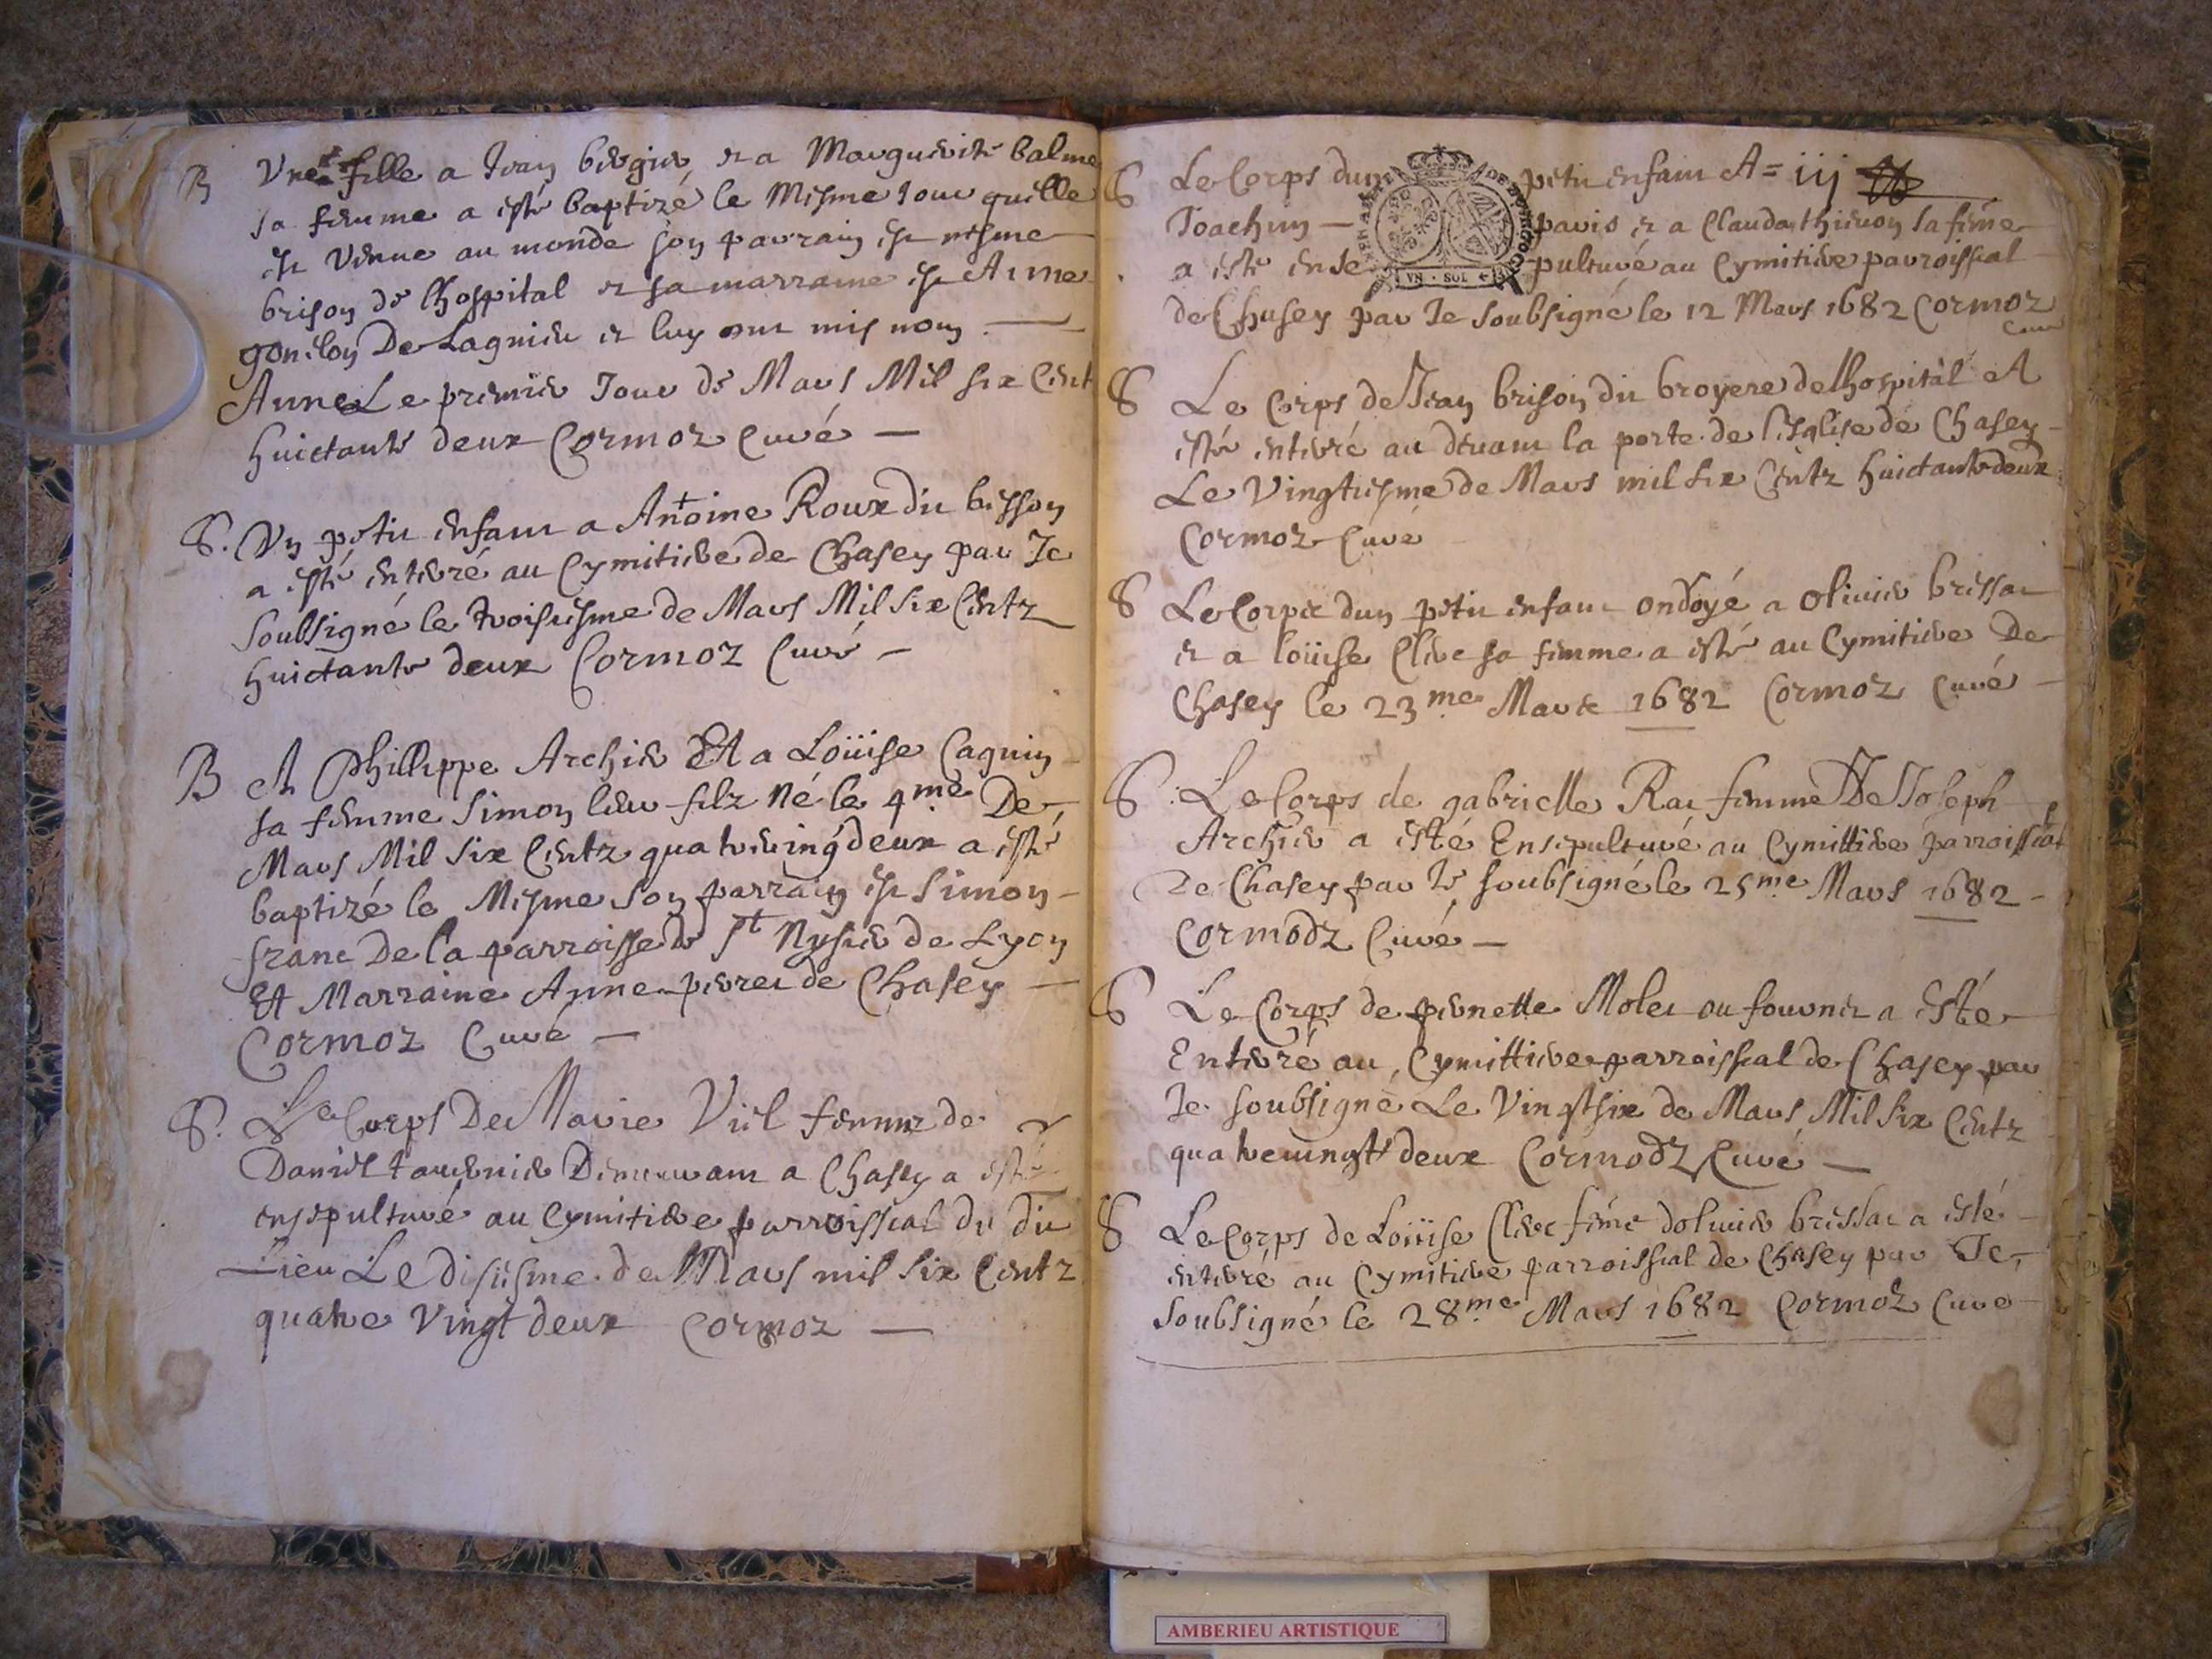 B Une fille a Jean bergier et a Marguerite balme
sa femme a esté baptizé le Mesme Jour quelle
est Venue au monde son parrain est mesme
brison de lhospital et sa marraine est Anne
de Lagnieu et luy ont mis nom
Anne Le premier Jour de Mars Mil six Cent
huictante deux Cormoz Curé
S. Un petit enfant a Antoine Roux dit besson
a esté enterré au Cymitiere de Chasey par Je
soubsigné le troisiesme de Mars Mil six Centz
huictante deux Cormoz Curé
B A Phillippe Archier Et a Loüise Caguin
sa femme Simon leur filz Né le 4me De
Mars Mil six Centz quatreving deux a esté
baptizé le Mesme son parrain est simon
franc De la parroisse de st Nysier de Lyon
Et Marraine Anne perret de Chasey
Cormoz Curé
S. Le Corps De Marie Viel femme de
Daniel tavernier Demeurant a Chasey a esté
ensepulturé au Cymitiere parroissial du dit
Lieu Le disiesme de Mars mil six Centz
quatre Vingt deux Cormoz
S Le Corps dun petit enfant A= iij
Joachim paris et a Clauda thievon sa feme
a esté ense pulturé au Cymitiere parroissial
UN · SOL
de Chasey par Je soubsigné le 12 Mars 1682 Cormoz
Curé
S Le Corps de Jean brison dit broyere de lhospital A
esté enterré au devant la porte de l'Esglise de Chasey
Le Vingtiesme de Mars mil six Centz huictante deux
Cormoz Curé
S Le Corps dun petit enfant ondoyé a olivier bressat
et a loüise Clerc sa femme a esté au Cymitiere De
Chasey le 23me Mars 1682 Cormoz Curé
S. Le Corps de gabrielle Rat femme De Joseph
Archier a esté Ensepulturé au Cymittiere parroissial
De Chasey par Je soubsigné le 25me Mars 1682
Cormodz Curé
S Le Corps de pernette Molet ou fournier a esté
Enterré au Cymittiere parroissial de Chasey par
Je soubsigné Le Vingtsix de Mars Mil six Centz
quatrevingt deux Cormodz Curé
S Le Corps de Loüise Clerc feme dolivier bressat a esté
enterré au Cymitiere parroissial de Chasey par Je
soubsigné le 28me Mars 1682 Cormoz Curé
AMBERIEU ARTISTIQUE